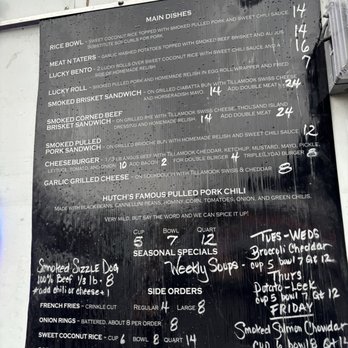 MAIN DISHES
RICE BOWL - SWEET COCONUT RICE TOPPED WITH SMOKED PULLED PORK AND SWEET CHILI SAUCE 14
SUBSTITUTE SOY CURLS FOR PORK
MEAT N TATERS - GARLIC MASHED POTATOES TOPPED WITH SMOKED BEEF BRISKET AND AU JUS 14
LUCKY BENTO - 2 LUCKY ROLLS OVER SWEET COCONUT RICE WITH SWEET CHILI SAUCE AND A 16
SIDE OF HOMEMADE RELISH
LUCKY ROLL - SMOKED PULLED PORK AND HOMEMADE RELISH IN EGG ROLL WRAPPER AND FRIED 7
SMOKED BRISKET SANDWICH - ON GRILLED CIABATTA BUN W/ TILLAMOOK SWISS CHEESE
AND HORSERADISH MAYO 14 ADD DOUBLE MEAT 24
SMOKED CORNED BEEF
BRISKET SANDWICH - ON GRILLED RYE WITH TILLAMOOK SWISS CHEESE, THOUSAND ISLAND
DRESSING AND HOMEMADE RELISH 14 ADD DOUBLE MEAT 24
SMOKED PULLED
PORK SANDWICH - ON GRILLED BRIOCHE BUN WITH HOMEMADE RELISH AND SWEET CHILI SAUCE 12
CHEESEBURGER - 1/3 LB ANGUS BEEF WITH TILLAMOOK CHEDDAR, KETCHUP, MUSTARD, MAYO, PICKLE,
LETTUCE, TOMATO, AND ONION 10 ADD BACON 2 FOR DOUBLE BURGER 4 TRIPLE 8
GARLIC GRILLED CHEESE - ON SOURDOUGH WITH TILLAMOOK SWISS & CHEDDAR 8
HUTCH'S FAMOUS PULLED PORK CHILI
MADE WITH BLACK BEANS, CANNELLINI BEANS, HOMINY, CORN, TOMATOES, ONION, AND GREEN CHILIS.
VERY MILD, BUT SAY THE WORD AND WE CAN SPICE IT UP!
CUP BOWL QUART
5 7 12
SEASONAL SPECIALS
Weekly Soups -
TUES - WEDS
Broccoli Cheddar
cup 5 bowl 7 Qt 12
Thurs
Potato - Leek
cup 5 bowl 7 Qt 12
FRIDAY
Smoked Salmon Chowdar
cup 6 bowl 8
Smoked Sizzle Dog
100% Beef 1/3 lb - 8
*add chili or cheese + 1
SIDE ORDERS
FRENCH FRIES - CRINKLE CUT REGULAR 4 LARGE 8
ONION RINGS - BATTERED, ABOUT 8 PER ORDER 8
SWEET COCONUT RICE - CUP 6 BOWL 8 QUART 14